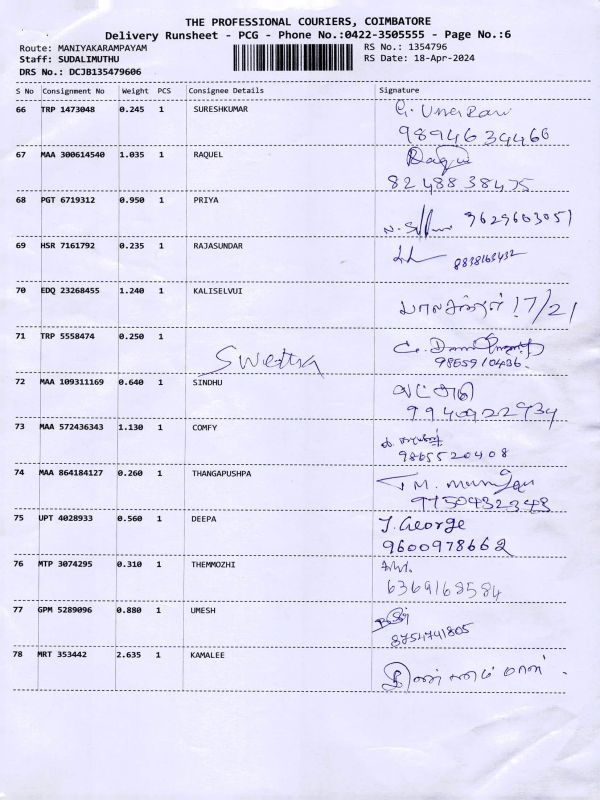 THE PROFESSIONAL COURIERS, COIMBATORE
Delivery Runsheet - PCG - Phone No.:0422-3505555 - Page No.:6
Route: MANIYAKARAMPAYAM RS No.: 1354796
Staff: SUDALIMUTHU RS Date: 18-Apr-2024
DRS No.: DCJB135479606
S No Consignment No Weight PCS Consignee Details Signature
66 TRP 1473048 0.245 1 SURESHKUMAR
98946 39466
67 MAA 300614540 1.035 1 RAQUEL Raquel
82488 38475
68 PGT 6719312 0.950 1 PRIYA
9629603051
69 HSR 7161792 0.235 1 RAJASUNDAR
8838163432
70 EDQ 23268455 1.240 1 KALISELVUI
17/21
71 TRP 5558474 0.250 1
Swetha 9865910436.
72 MAA 109311169 0.640 1 SINDHU
9940922934
73 MAA 572436343 1.130 1 COMFY
9865520408
74 MAA 864184127 0.260 1 THANGAPUSHPA T.M. Murugan
9750932343
75 UPT 4028933 0.560 1 DEEPA J. George
9600978662
76 MTP 3074295 0.310 1 THEMMOZHI
6369168584
77 GPM 5289096 0.880 1 UMESH
8754741805
78 MRT 353442 2.635 1 KAMALEE